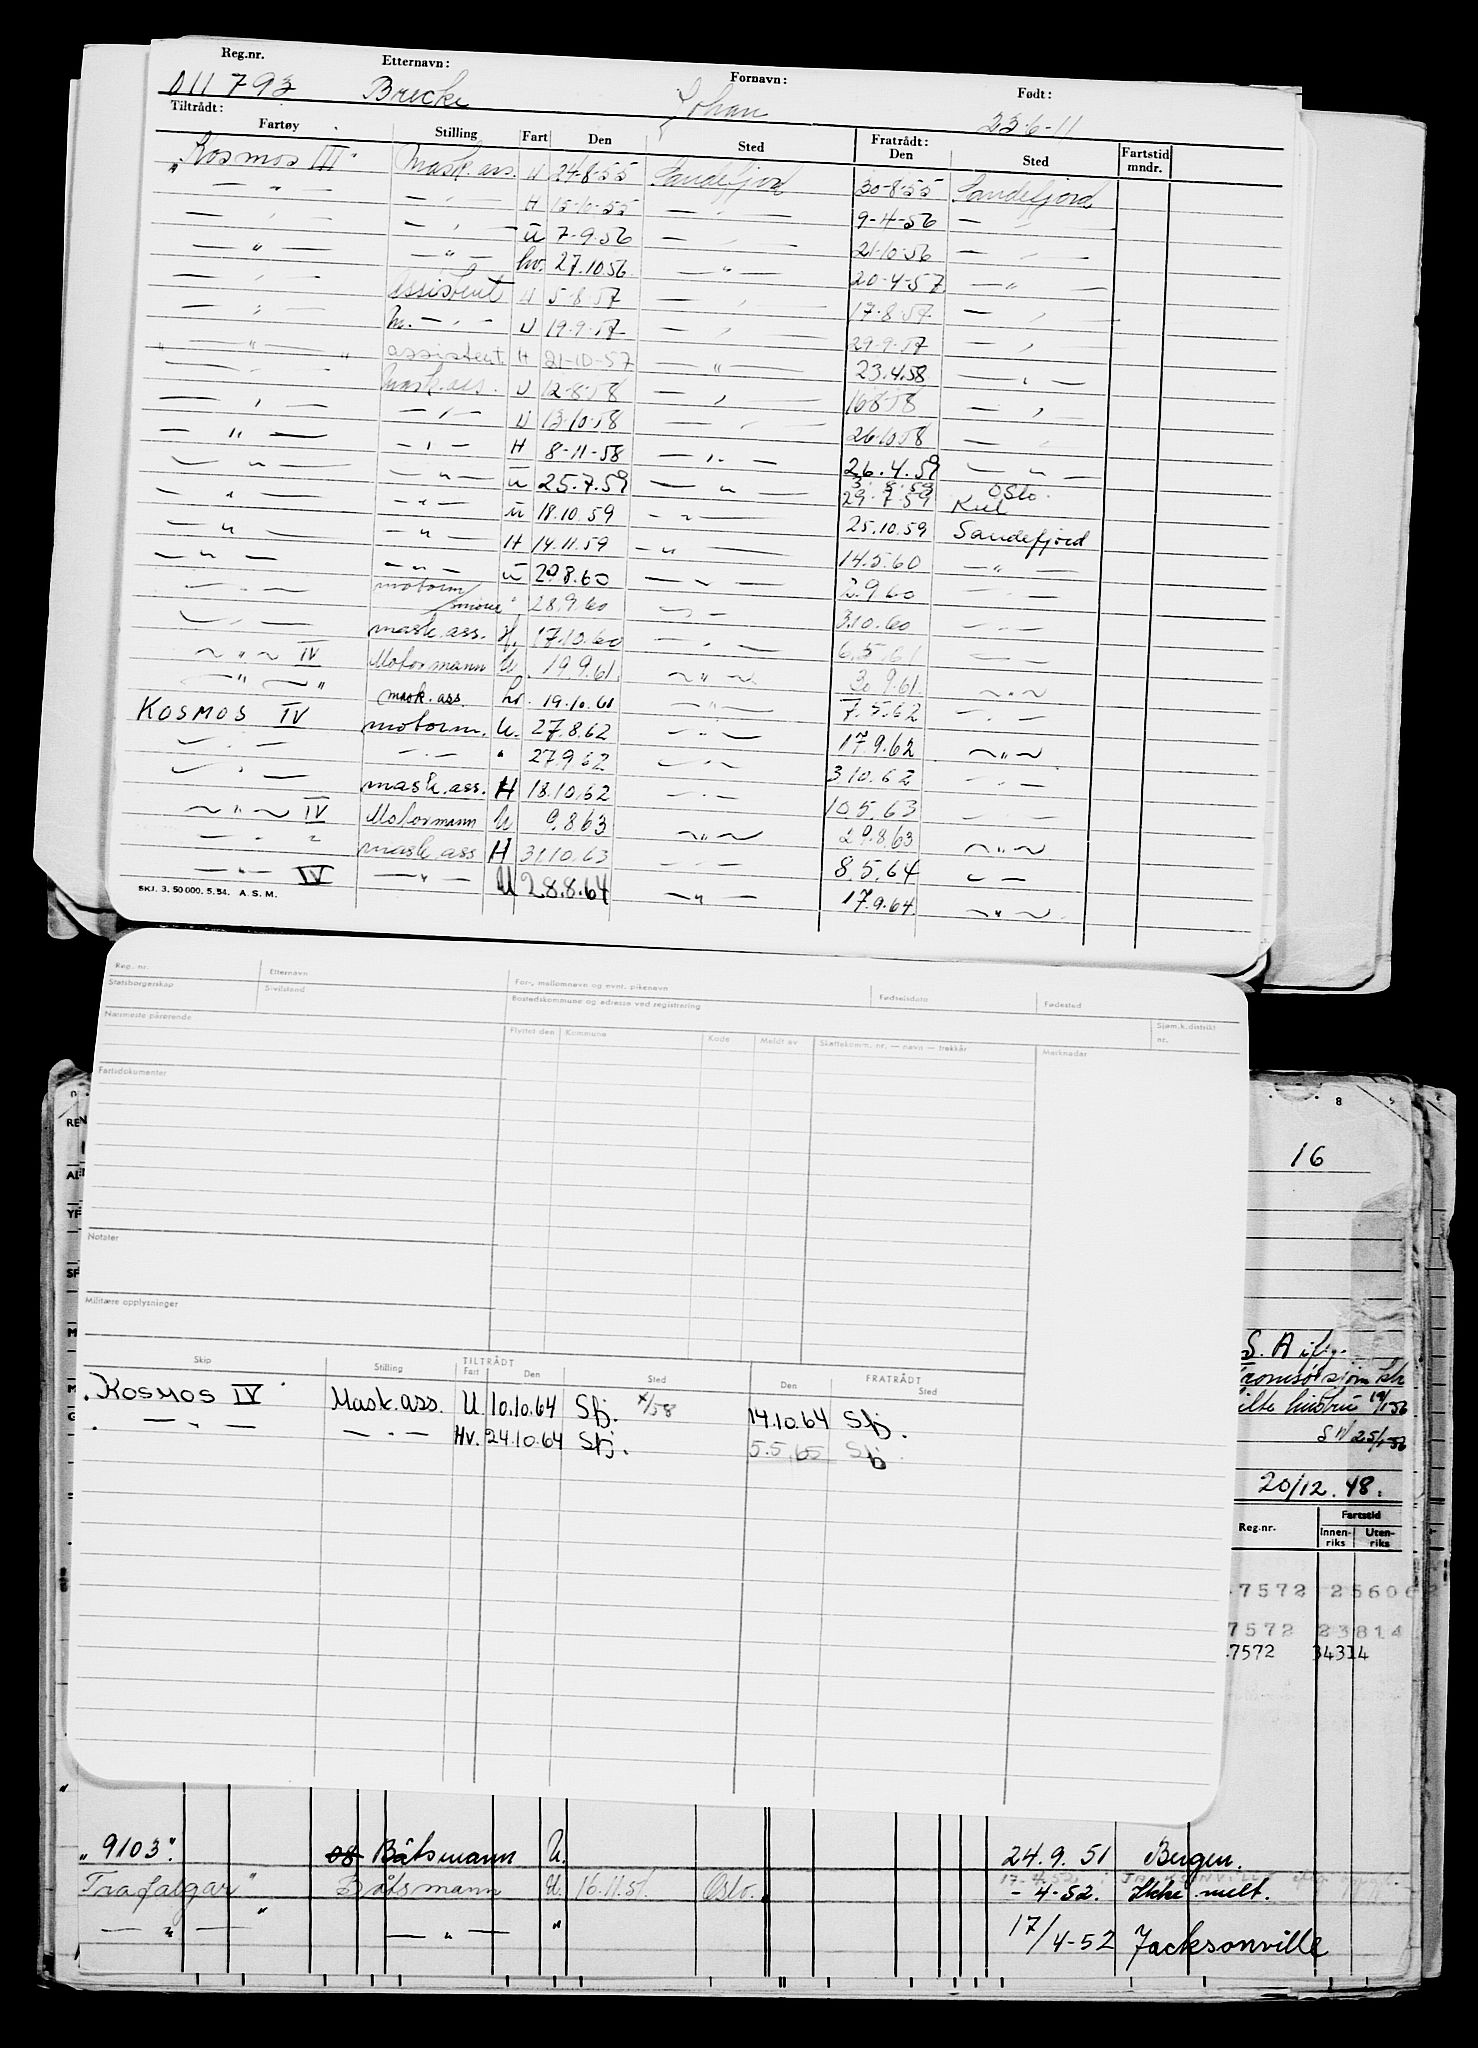 Reg.nr. Etternavn: Fornavn: Født:
011793 Brecke Johan 23-6-11
Tiltrådt: Fratrådt:
Fartøy Stilling Fart Den Sted Den Sted Fartstid mndr.
"Kosmos III" Mask.ass. U 24-8-55 Sandefjord 30-8-55 Sandefjord
— " — — " — H 15-10-55 — " — 9-4-56 — " —
— " — — " — U 7-9-56 — " — 21-10-56 — " —
— " — — " — hv. 27.10.56 — " — 20-4-57 — " —
— " — assistent U 5-8-57 — " — 17-8-57 — " —
— " — — " — U 19.9.57 — " — 29-9-57 — " —
" — " — " assistent H 21-10-57 — " — 23.4.58 — " —
— " — Mask.ass. U 12-8-58 — " — 16858 — " —
— " — — " — U 13-10-58 — " — 26-10-58 — " —
— " — — " — H 8-11-58 — " — 26.4.59 — " —
— " — — " — U 25.7.59 — " — 3. 8.59 Oslo.
29.7.59 Kiel
— " — — " — U 18.10.59 — " — 25.10.59 Sandefjord
— " — — " — H 14.11.59 — " — 14.5.60 — " —
— " — — " — U 29.8.60 — " — 2.9.60 — " —
— " — motorm " 28.9.60 — " — 3.10.60 — " —
— " — mask.ass. H. 17.10.60 — " — 6.5.61 — " —
— " — IV Motormann U. 19.9.61. — " — 30.9.61. — " —
— " — " mask.ass. hv. 19.10.61 — " — 7.5.62 — " —
KOSMOS IV motorm. U. 27.8.62 — " — 17.9.62 — " —
— " — — " — " 27.9.62 — " — 3.10.62 — " —
— " — mask.ass. H 18.10.62 — " — 10.5.63 — " —
— " — IV Motormann U 9.8.63 — " — 29.8.63 — " —
— " — mask.ass H 31.10.63 — " — 8.5.64 — " —
— " — IV — " — U 28.8.64 — " — 17.9.64. — " —
SKJ. 3. 50 000. 5. 54. A. S. M.
Reg. nr. Etternavn For-, mellomnavn og evnt. pikenavn Fødselsdato Fødested
Statsborgerskap Sivilstand Bostedskommune og adresse ved registrering
Nærmeste pårørende Sjøm.k.distrikt nr.
Flyttet den Kommune Kode Meldt av Skattekomm. nr. — navn — trekkår Merknader
Fartsdokumenter
Notater
Militære opplysninger
Skip Stilling TILTRÅDT Fart Den Sted FRATRÅDT Den Sted
"KOSMOS IV" Mask.ass. U 10.10.64 Sfj. x/58 14.10.64 Sfj.
— " — — " — Hv. 24.10.64 Sfj. 5.5.65 Sfj
8
RE
16
AD
YF
SF
M
M
G
S. A
19/1 56
25/1-56
20/12. 48.
Reg.nr. Fartstid
Innen-riks Uten-riks
7572 25606
7572 23814
7572 34314
"9103". 08 Båtsmann U. 24.9.51 Bergen.
Trafalgar" Båtsmann U. 16.11.51. Oslo. -4-52. Ikke melt.
— " — — " — " 17/4-52 Jacksonville